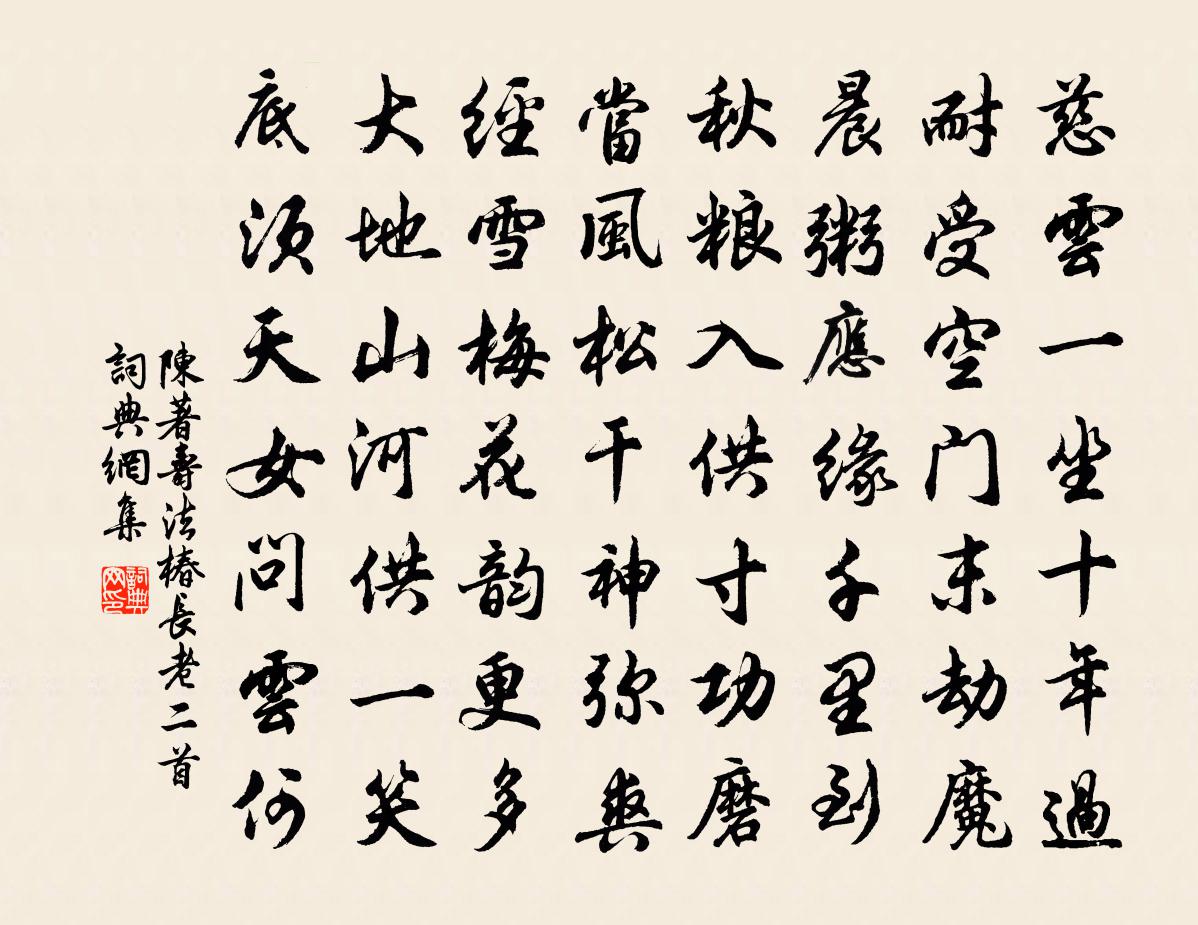 慈雲一坐十年過
耐受空门末劫魔
晨粥應緣千里到
秋粮入供寸功磨
當風松干神弥爽
經雪梅花韵更多
大地山河供一笑
底須天女問雲何
陳著壽法椿長老二首
詞典網集